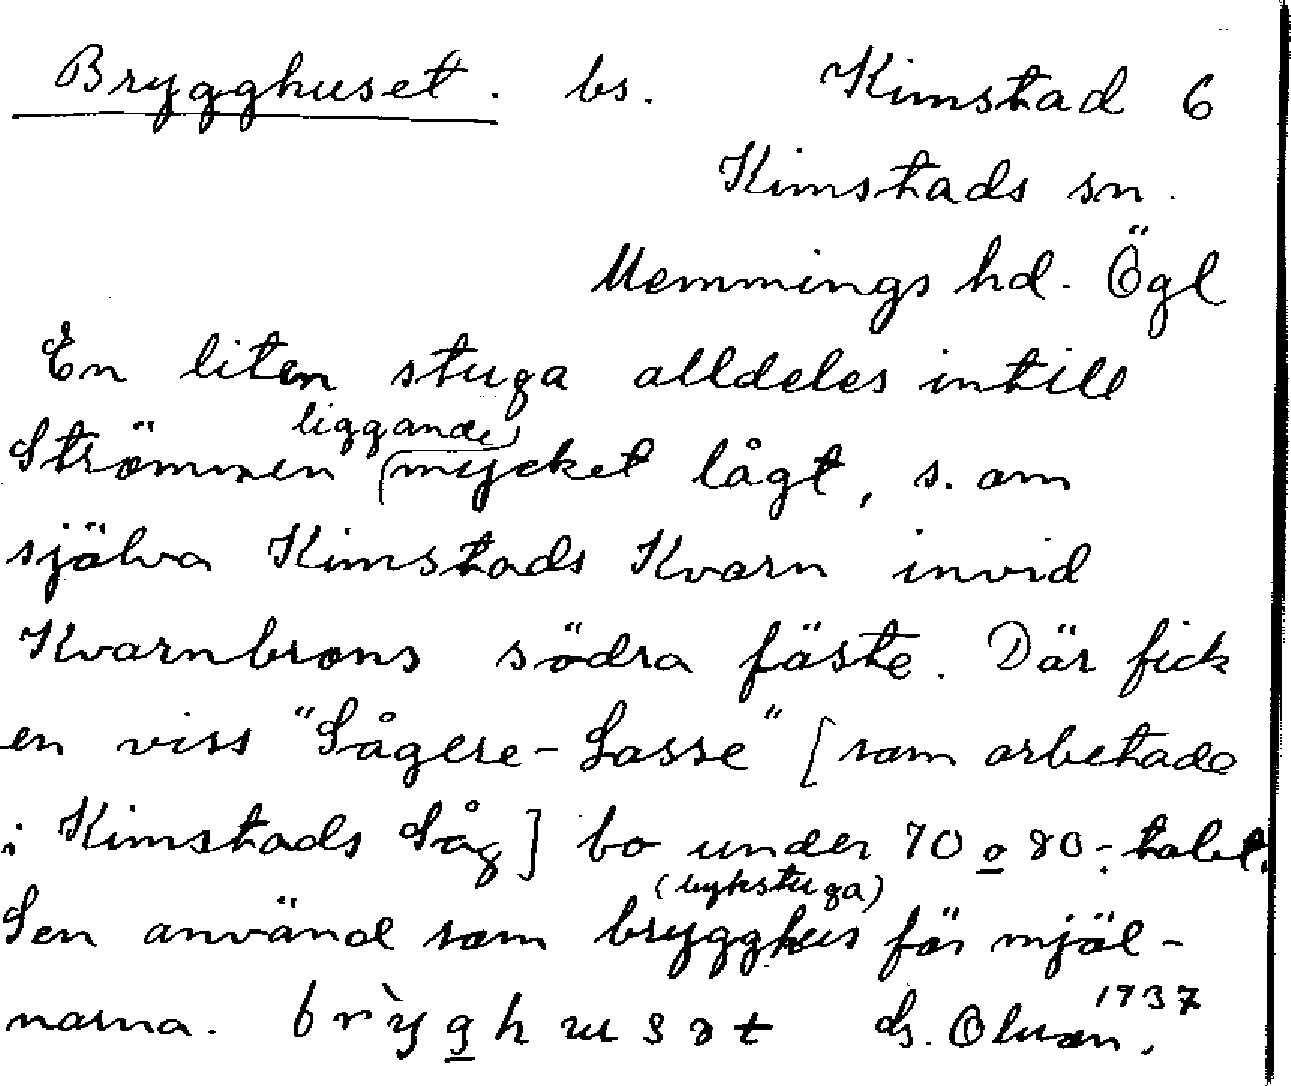 Brygghuset. bs. Kimstad 6
Kimstads sn.
Memmings hd. Ögl
En liten stuga alldeles intill
Strömmen liggande mycket lågt, s. om
själva Kimstads Kvarn invid
Kvarnbrons södra fäste. Där fick
en viss "Sågere-Lasse" [som arbetade
i Kimstads Såg] bo under 70 o 80-talet.
Sen använd som brygghus (bykstuga) för mjöl-
narna. 1937